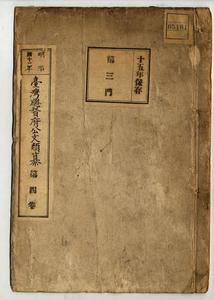 十五年保存
第三門
明治
四十一年
臺灣總督府公文類纂
第四卷